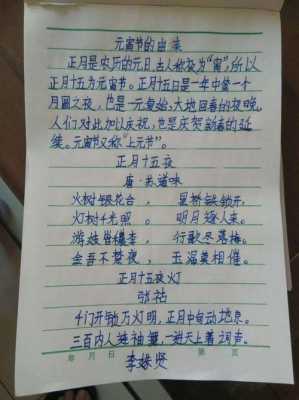 元宵节的由来
正月是农历的元日,古人称夜为"宵",所以
正月十五为元宵节。正月十五日是一年中第一个
月圆之夜,也是一元复始,大地回春的夜晚,
人们对此加以庆祝,也是庆贺新春的延
续。元宵节又称"上元节"。
正月十五夜
唐·苏道味
火树银花合, 星桥铁锁开,
灯树千光照。 明月逐人来。
游妓皆秾李, 行歌尽落梅。
金吾不禁夜, 玉漏莫相催。
正月十五夜灯
张祜
千门开锁万灯明,正月中旬动地京。
三百内人连袖舞,一进天上著词声。
年 月 日 第 页
李姝贤